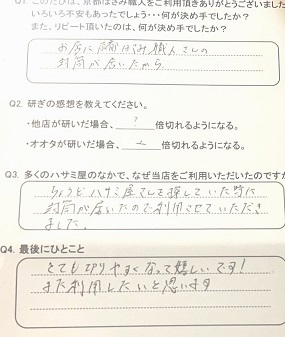 Q1. このたびは、京都はさみ職人をご利用頂きありがとうございました
いろいろ不安もあったでしょう・・・何が決め手でしたか？
また、リピート頂いたのは、何が決め手でしたか？
お店に はさみ職人さんの
封筒が届いたから
Q2. 研ぎの感想を教えてください。
・他店が研いだ場合、 ? 倍切れるようになる。
・オオタが研いだ場合、 倍切れるようになる。
Q3. 多くのハサミ屋のなかで、なぜ当店をご利用いただいたのですか
ちょうどハサミ屋さんを探していた時に
封筒が届いたので利用させていただき
ました。
Q4. 最後にひとこと
とても切りやすくなって嬉しいです！
また利用したいと思います